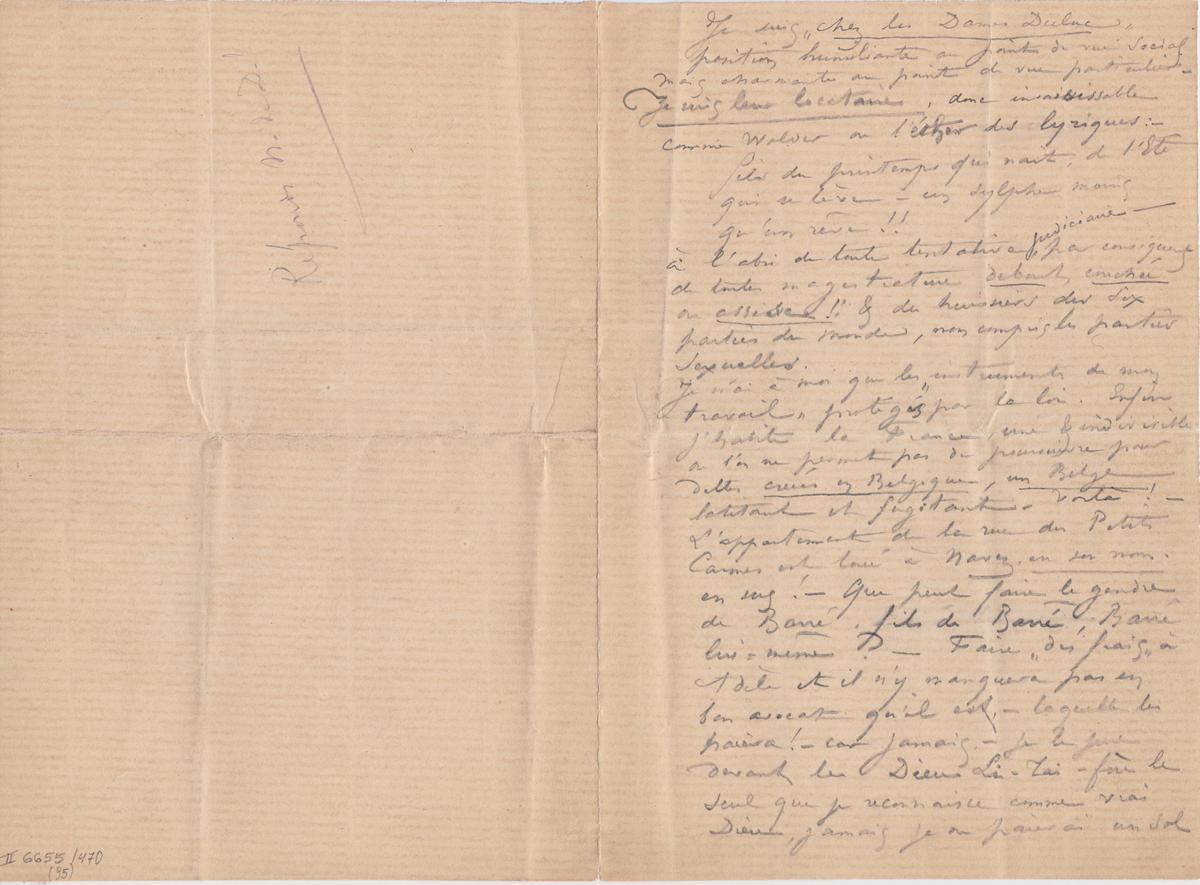 Je suis „chez les Dames Duluc„
position humiliante au point de vue social
mais charmante au point de vue particulier –
Je suis leur locataire, donc insaisissable
comme Walder ou l'éther des lyriques: –
Fils du printemps qui nait, de l'Eté
qui se lève – un sylphe moins
qu'un rêve!!
à l'abri de toute tentative judiciaire – par conséquent
de toutes magistrature debout, couchée
ou assise!! & de huissiers des six
parties du monde, non compris les parties
sexuelles.
Je n'ai à moi que les „instruments de mon
travail„ protégés par la loi. Enfin
j'habite la France, une & indivisible
où l'on ne permet pas de poursuivre pour
dettes créées en Belgique, un Belge
latitant et fugitant. Voilà! –
L'appartement de la rue des Petits
Carmes est loué à Navez en son nom.
en sus! – Que peut faire le gendre
de Barré, fils de Barré, Barré
lui-même? – Faire „des frais„ à
et il n'y manquera pas en
bon avocat qu'il est, – laquelle les
paiera! – car jamais – je le jure
devant les Dieux Li-Tai-fôe le
seul que je reconnaisse comme vrai
Dieu, jamais je ne paierai un sol
II 6655/470
(95)